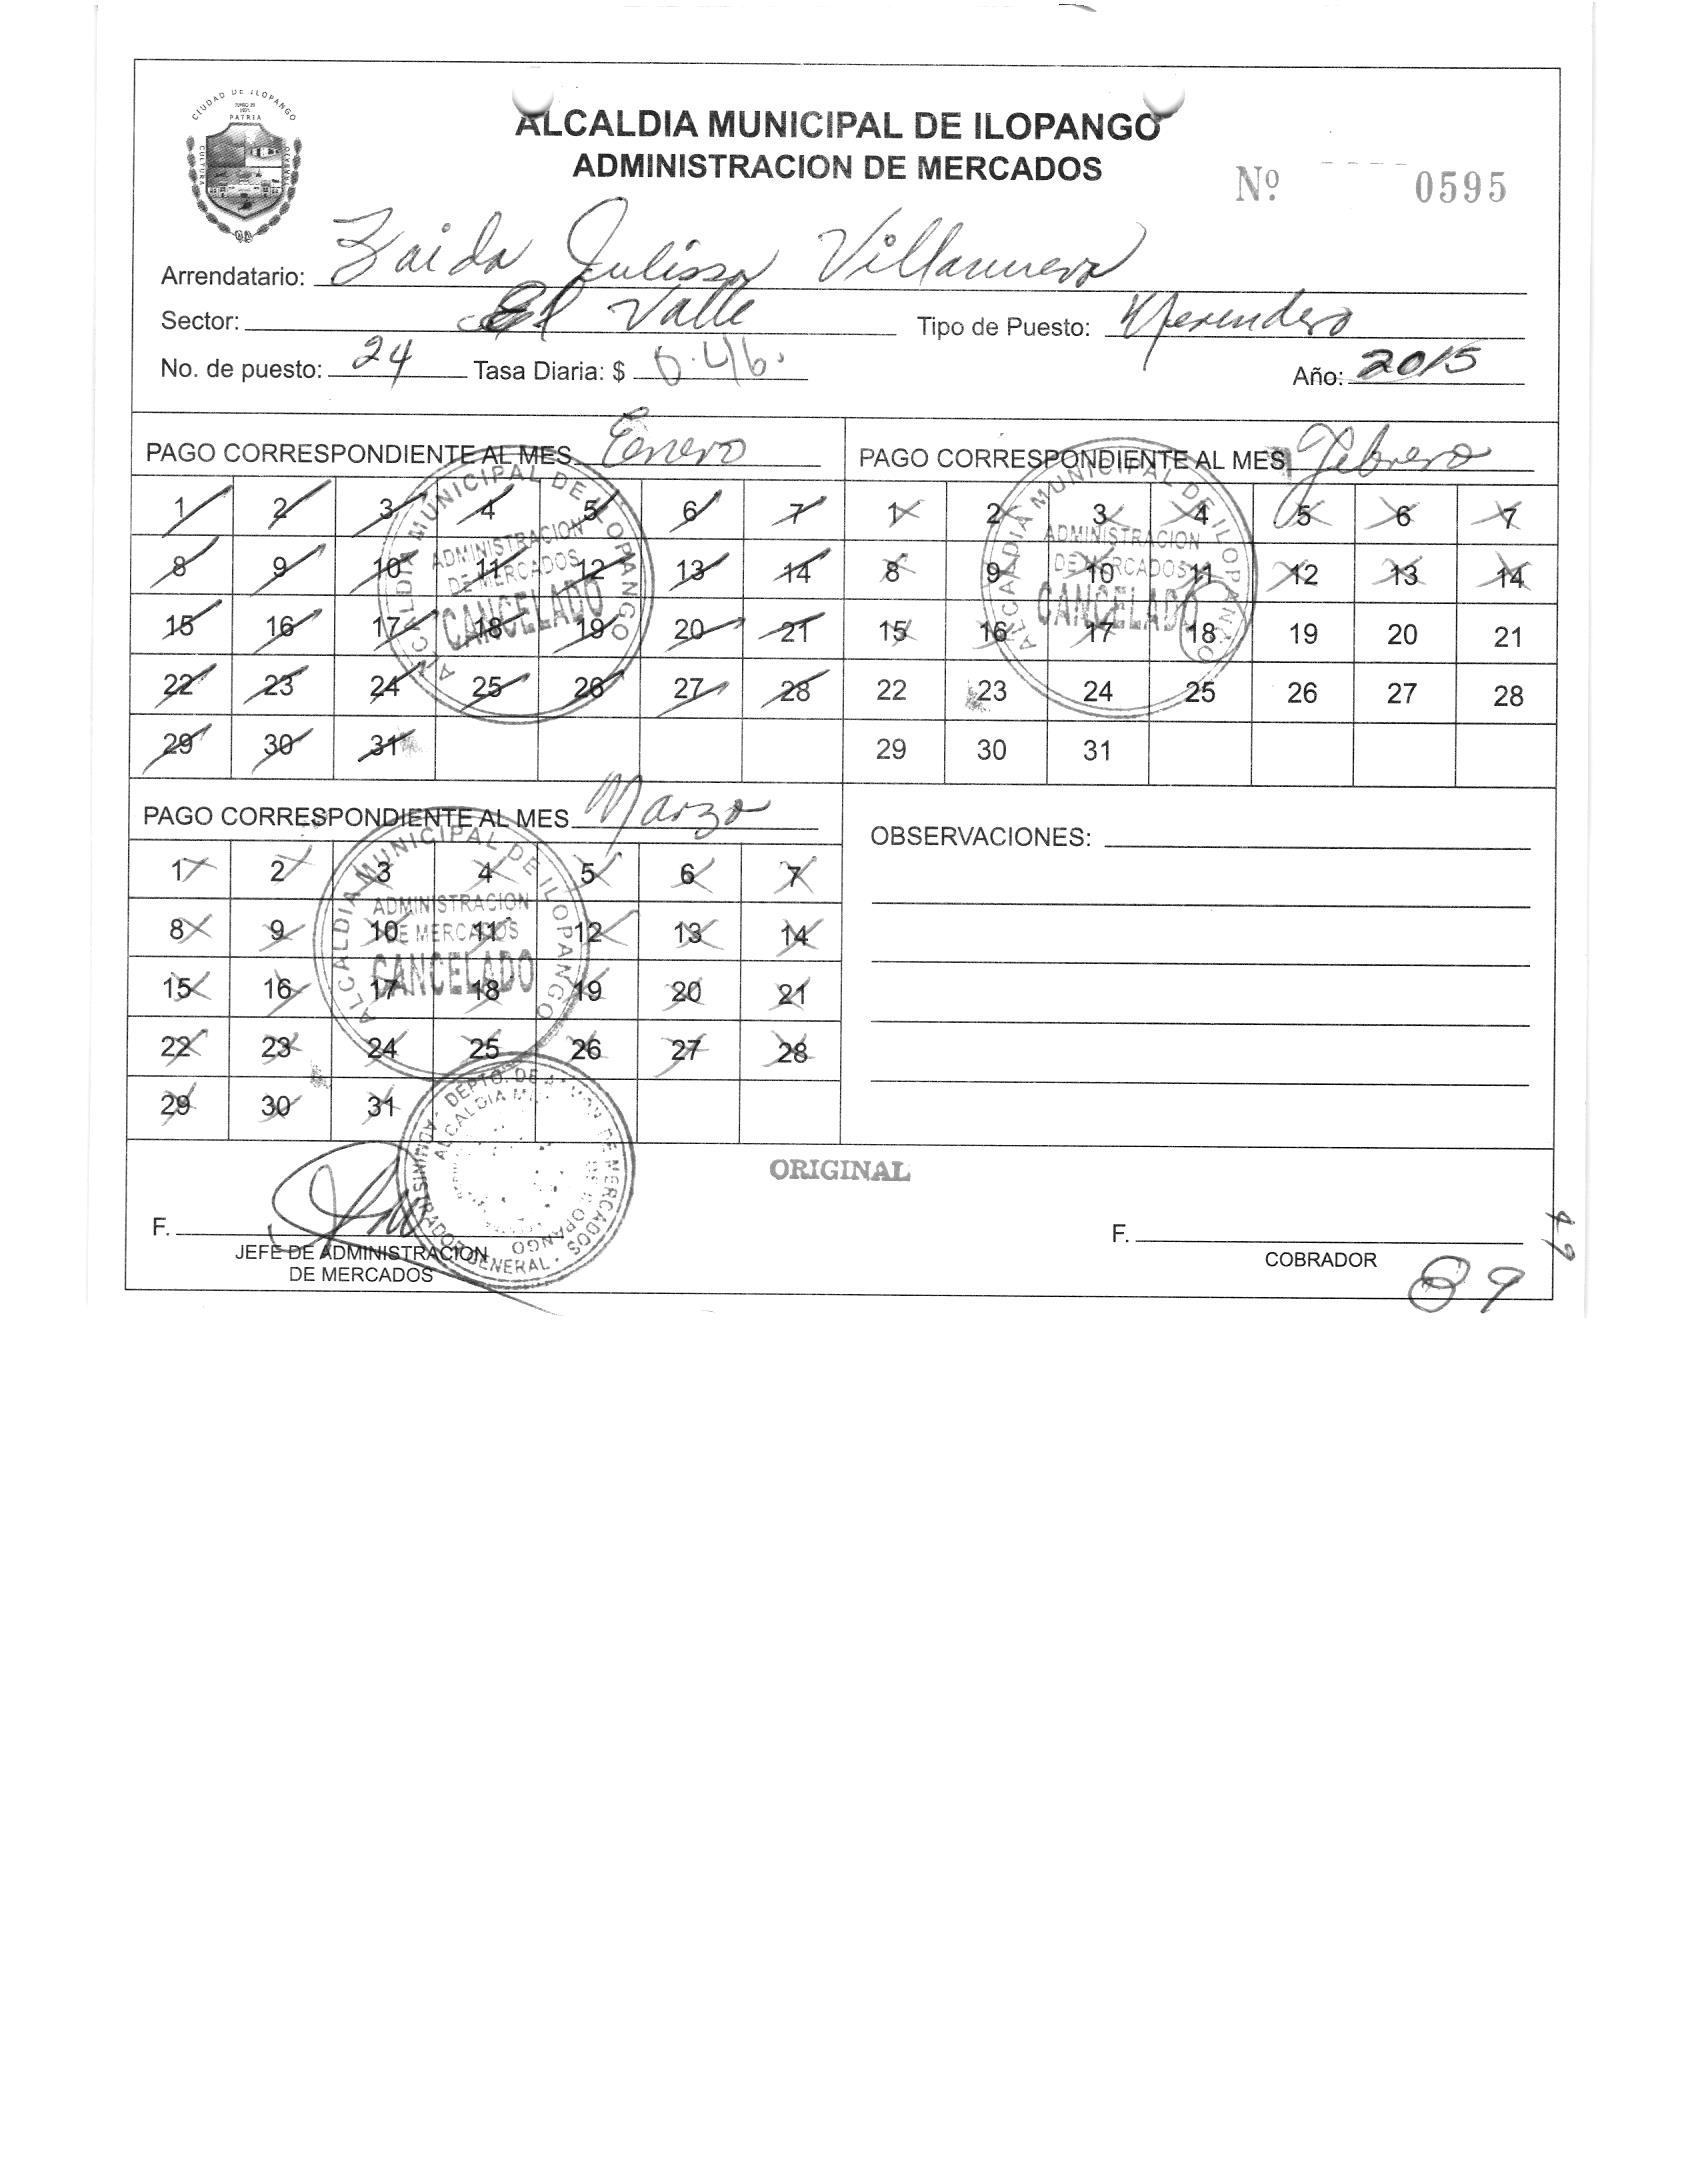 CIUDAD DE ILOPANGO
PATRIA
CULTURA
ALCALDIA MUNICIPAL DE ILOPANGO
ADMINISTRACION DE MERCADOS
Nº 0595
Arrendatario: Zaida Julissa Villanueva
Sector: El Valle Tipo de Puesto: Merendero
No. de puesto: 24 Tasa Diaria: $ 0.46. Año: 2015
PAGO CORRESPONDIENTE AL MES Enero
1 2 3 4 5 6 7
8 9 10 11 12 13 14
15 16 17 18 19 20 21
22 23 24 25 26 27 28
29 30 31
ALCALDIA MUNICIPAL DE ILOPANGO
ADMINISTRACION
DE MERCADOS
CANCELADO
PAGO CORRESPONDIENTE AL MES Febrero
1 2 3 4 5 6 7
8 9 10 11 12 13 14
15 16 17 18 19 20 21
22 23 24 25 26 27 28
29 30 31
ALCALDIA MUNICIPAL DE ILOPANGO
ADMINISTRACION
DE MERCADOS
CANCELADO
PAGO CORRESPONDIENTE AL MES Marzo
1 2 3 4 5 6 7
8 9 10 11 12 13 14
15 16 17 18 19 20 21
22 23 24 25 26 27 28
29 30 31
ALCALDIA MUNICIPAL DE ILOPANGO
ADMINISTRACION
DE MERCADOS
CANCELADO
OBSERVACIONES:
ORIGINAL
F.
JEFE DE ADMINISTRACION
DE MERCADOS
DEPTO. DE DE MERCADOS
ADMINISTRADOR GENERAL
ALCALDIA DE ILOPANGO
F.
COBRADOR
89
49